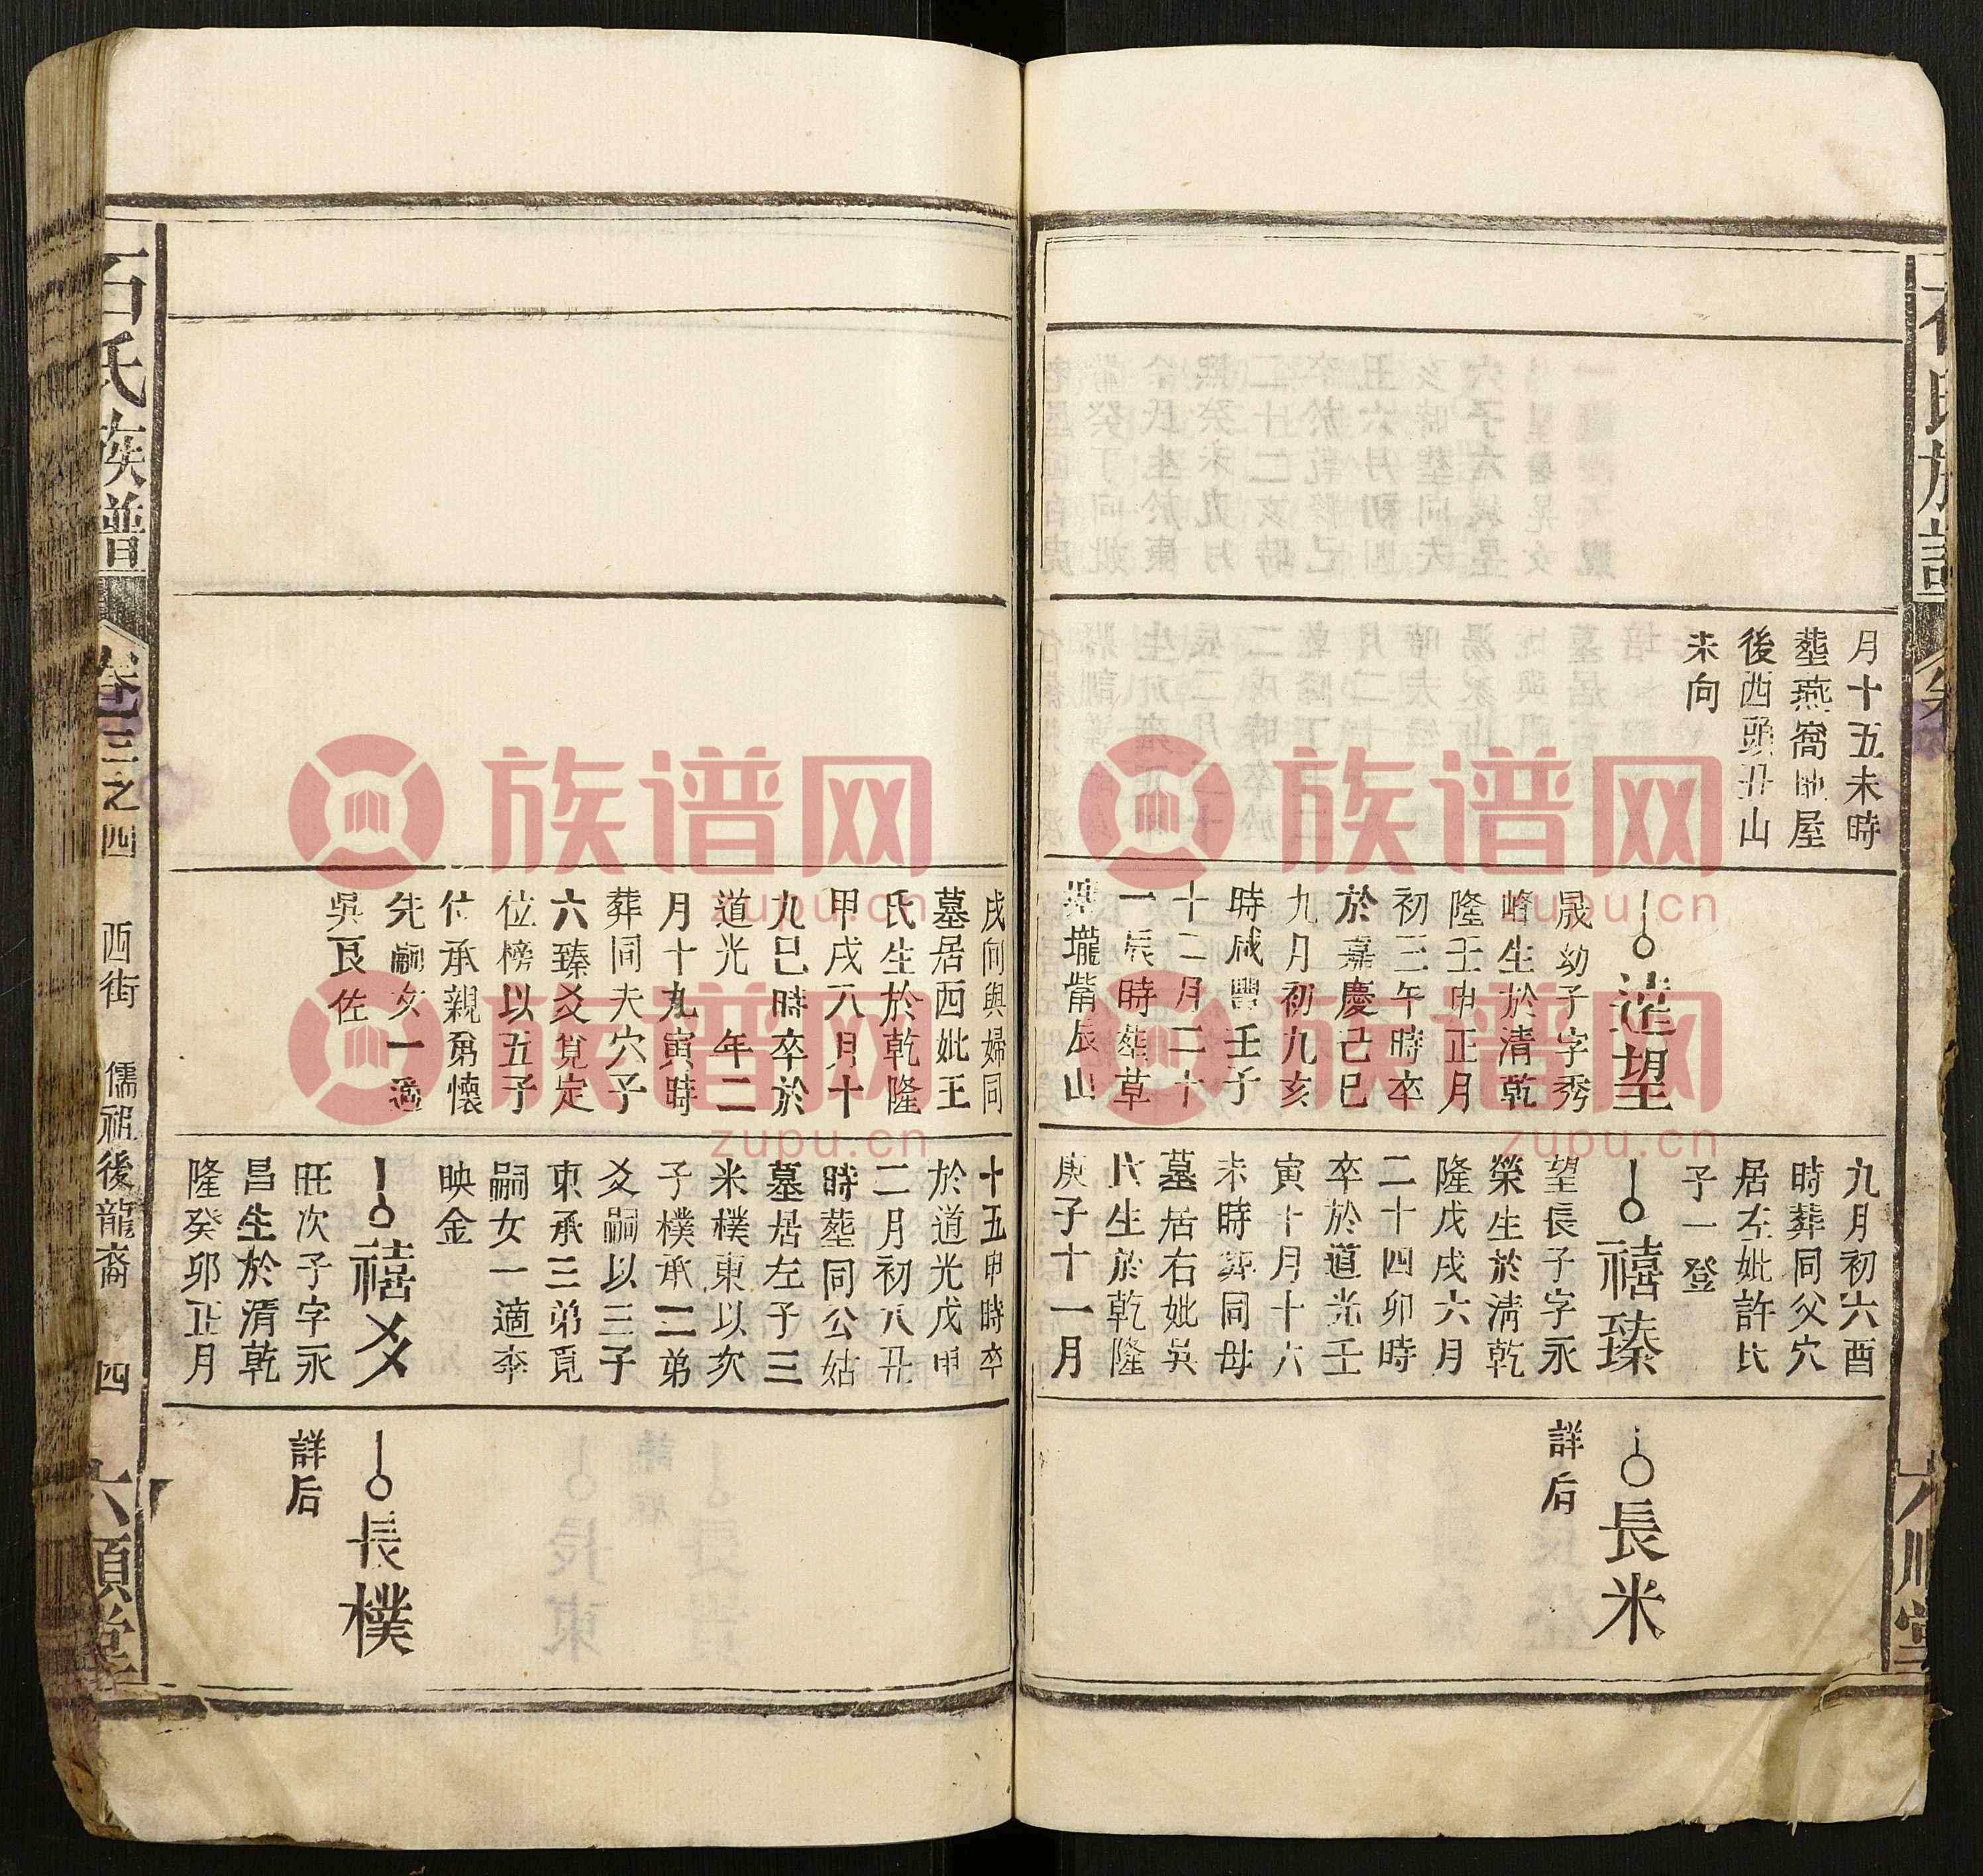 月十五未時
塟燕窩地屋
後西頭丑山
未向
達望
晟幼子字秀
峰生於清乾
隆壬申正月
初三午時卒
於嘉慶己巳
九月初九亥
時咸豐壬子
十二月二十
一辰時塟草
墓壠嘴辰山
九月初六酉
時葬同父穴
居左妣許氏
子一登
禧臻
望長子字永
榮生於淸乾
隆戊戌六月
二十四卯時
卒於道光壬
寅十月十六
未時葬同母
墓居右妣吳
氏生於乾隆
庚子十一月
長米
詳后
戌向與婦同
墓居西妣王
氏生於乾隆
甲戌八月十
九巳時卒於
道光 年二
月十九寅時
葬同夫穴子
六臻爻覓定
位榜以五子
位承親弟懷
先嗣女一適
吳良佐
十五申時卒
於道光戊申
二月初八丑
時塟同公姑
墓居左子三
米樸東以次
子樸承二弟
爻嗣以三子
東承三弟覓
嗣女一適李
映金
禧爻
旺次子字永
昌生於清乾
隆癸卯正月
長樸
詳后
石氏族譜
卷三之四
西街
儒祖後龍裔
四
六順堂
族谱网
zupu.cn
族谱网
zupu.cn
族谱网
zupu.cn
族谱网
zupu.cn